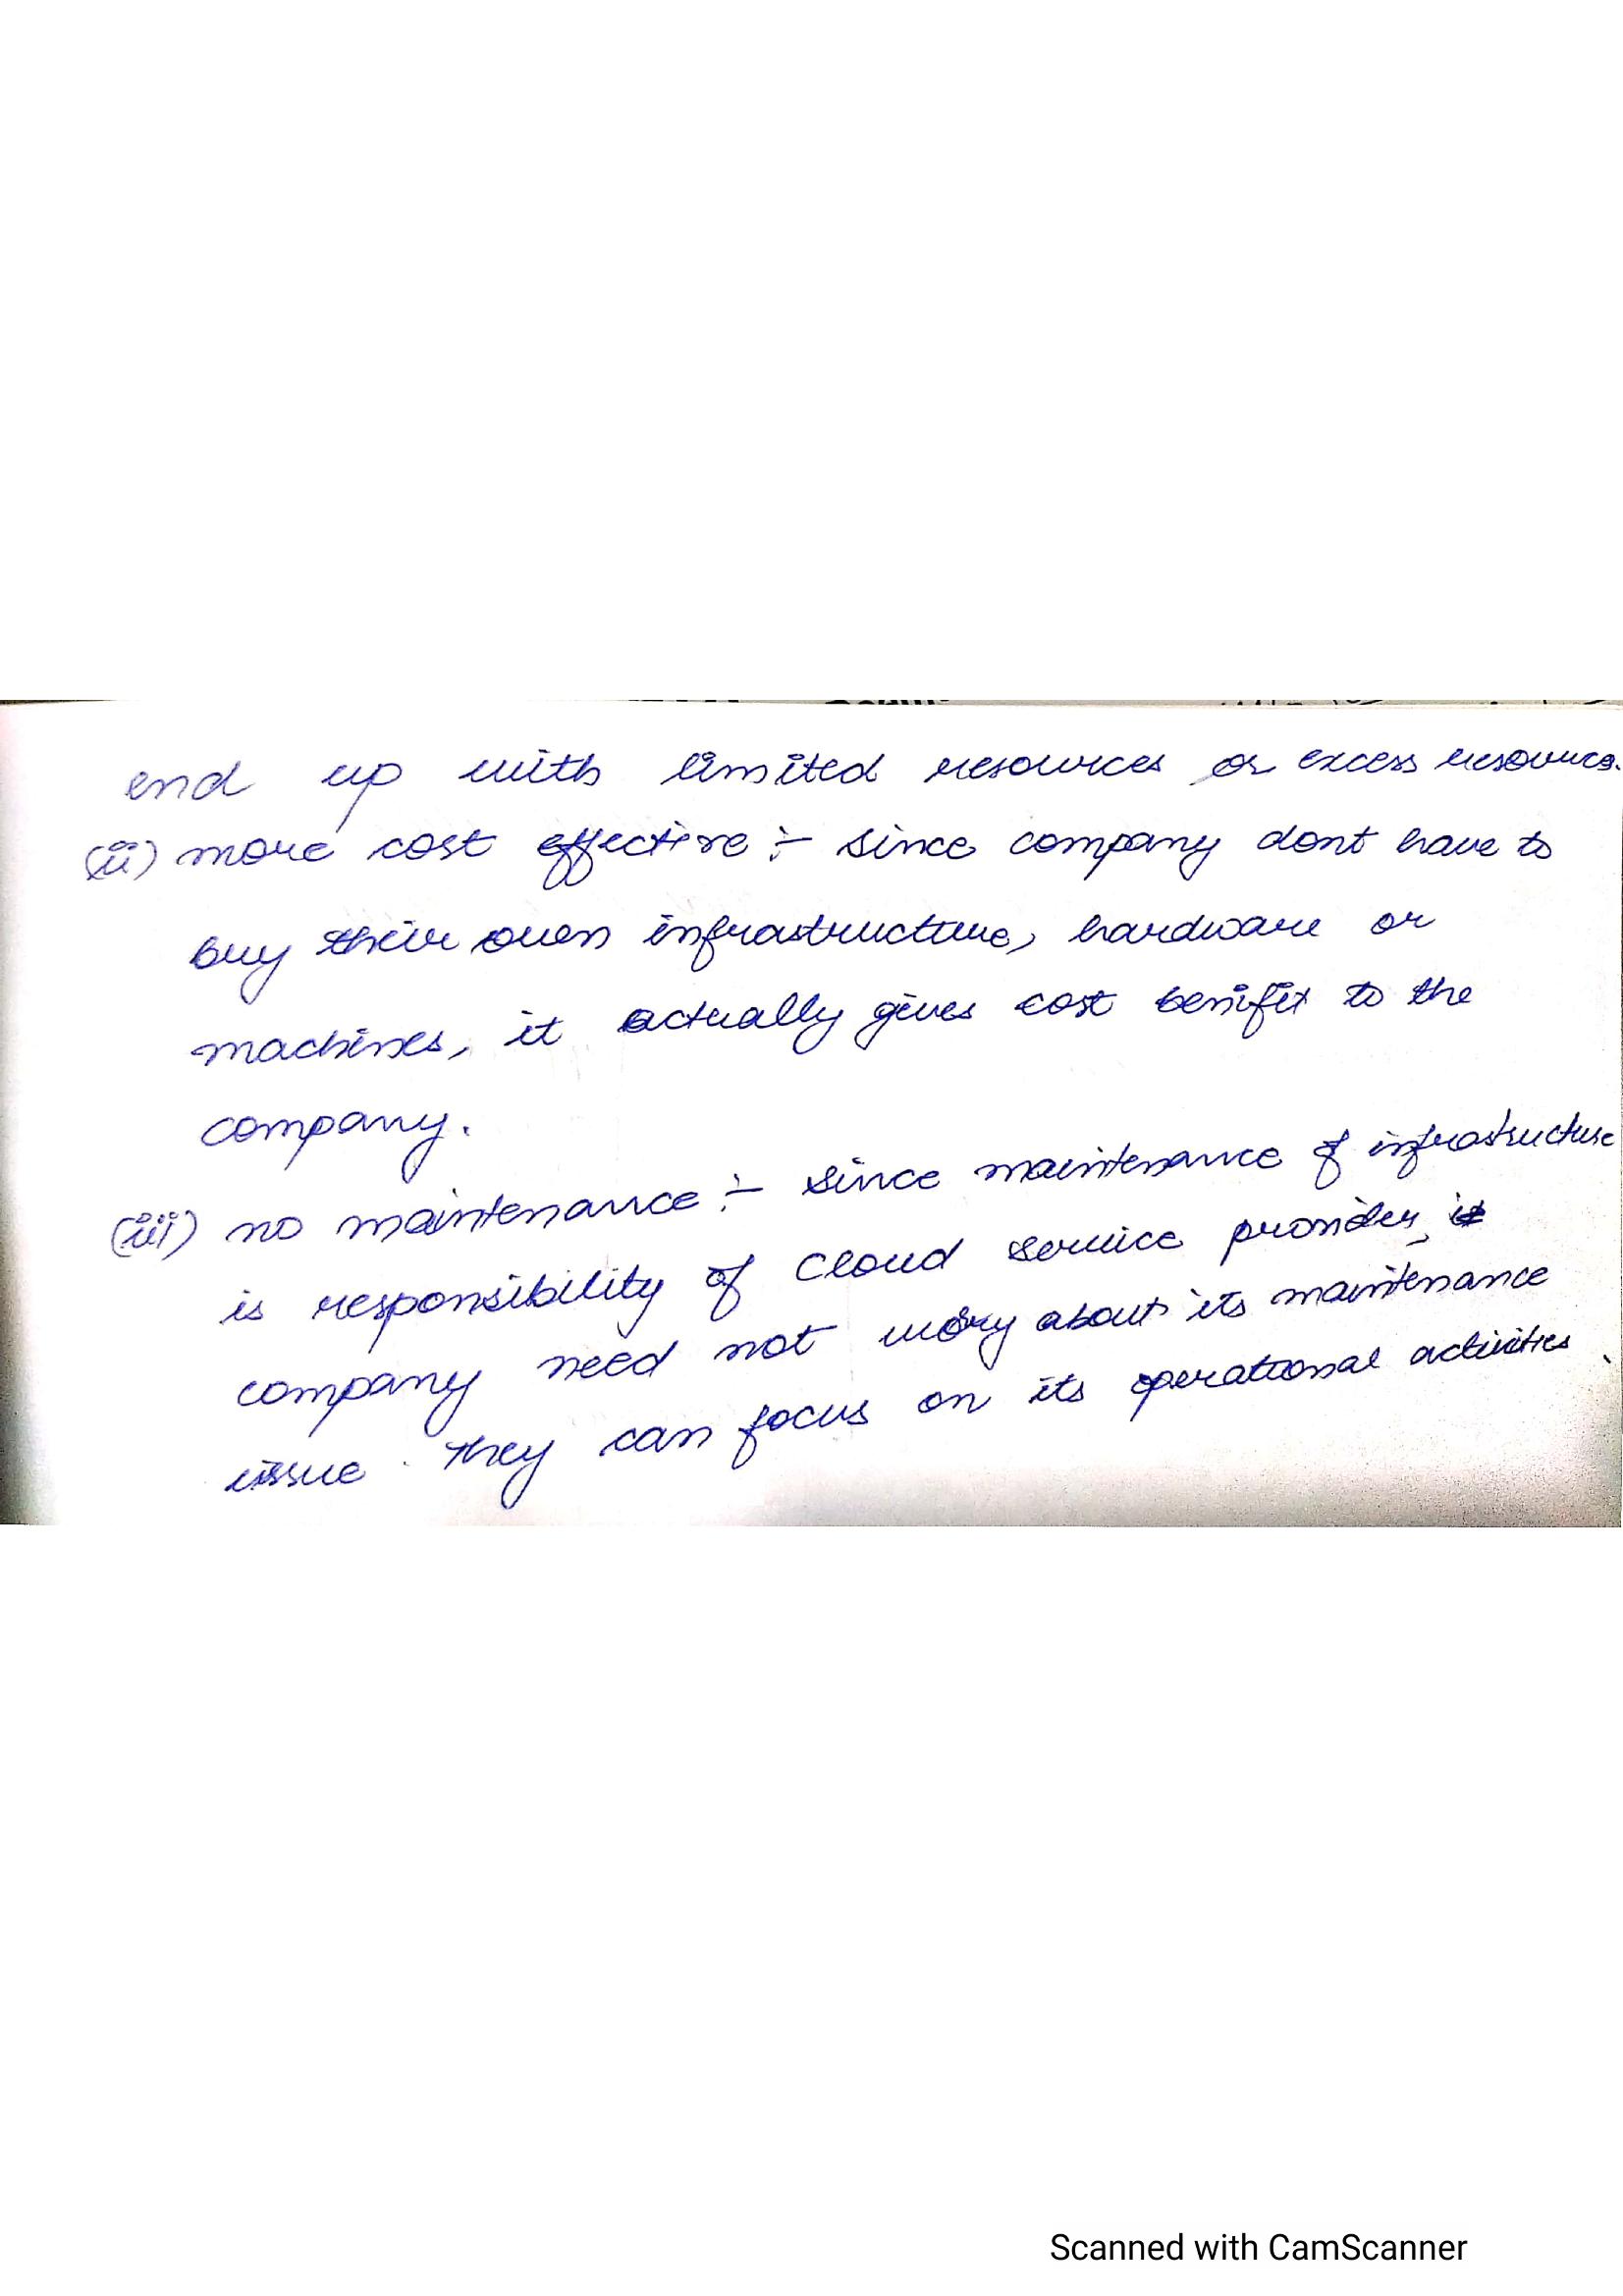 end up with limited resources or excess resources.
(ii) more cost effective :- since company dont have to
buy their own infrastructure, hardware or
machines, it actually gives cost benifit to the
company.
(iii) no maintenance :- since maintenance of infrastructure
is responsibility of cloud service provider,
company need not worry about its maintenance
issue. They can focus on its operational activities.
Scanned with CamScanner